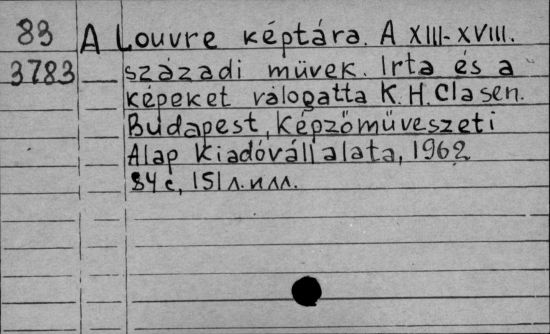 83 A Louvre képtára. A XIII-XVIII.
3783 századi müvek. Irta és a
képeket válogatta K.H.Clasen.
Budapest, Képzőmüveszeti
Alap Kiadóvállalata, 1962
84 с, 151 л. илл.